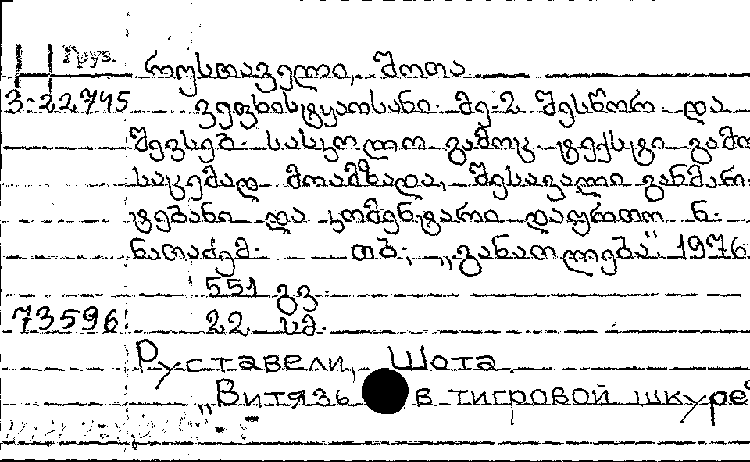 Груз.
რუსთაველი, შოთა
3-22745 ვეფხისტყაოსანი. მე-2 შესწორ. და
შევსებ. სასკოლო გამოც. ტექსტი გამო
საცემად მოამზადა, შესავალი განმარ-
ტებანი და კომენტარი დაურთო ნ.
ნათაძემ. თბ., „განათლება" 1976
551 გვ.
73596 22 სმ.
Руставели, Шота
„Витязь в тигровой шкуре"